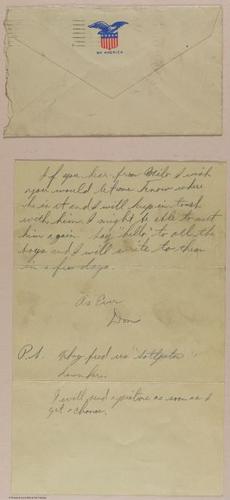 MY AMERICA
If you hear from Milo I wish
you would let me know where
he is at and I will keep in touch
with him. I might be able to meet
him again. Say "hello" to all the
boys and I will write to them
in a few days.
As Ever
Don
P.S. They feed us
down here.
I will send a picture as soon as I
get a chance.